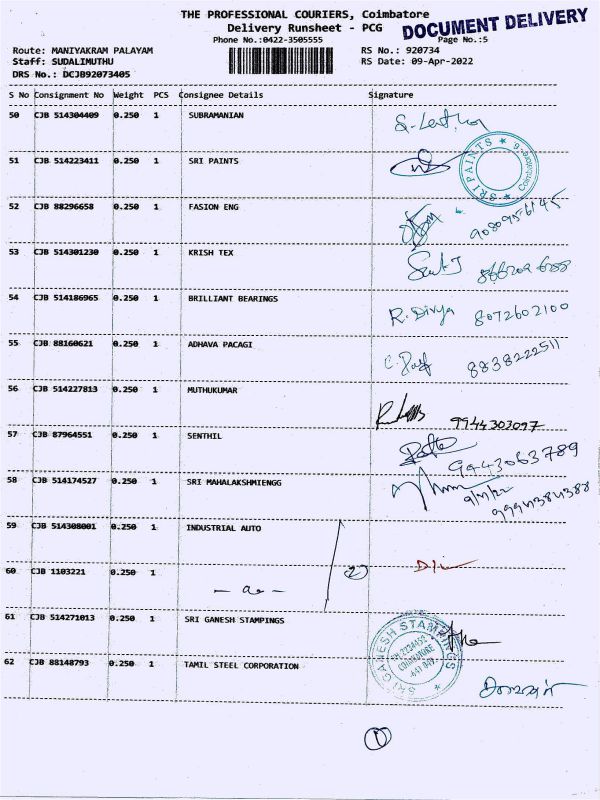 THE PROFESSIONAL COURIERS, Coimbatore
Delivery Runsheet - PCG
DOCUMENT DELIVERY
Phone No.:0422-3505555
Page No.:5
Route: MANIYAKRAM PALAYAM
RS No.: 920734
Staff: SUDALIMUTHU
RS Date: 09-Apr-2022
DRS No.: DCJB92073405
S No Consignment No Weight PCS Consignee Details Signature
50 CJB 514304409 0.250 1 SUBRAMANIAN
51 CJB 514223411 0.250 1 SRI PAINTS
SRI PAINTS ★ Coimbatore-6. ★
52 CJB 88296658 0.250 1 FASION ENG
9080956145
53 CJB 514301230 0.250 1 KRISH TEX
54 CJB 514186965 0.250 1 BRILLIANT BEARINGS
R. Divya 8072602100
55 CJB 88160621 0.250 1 ADHAVA PACAGI
8838222511
56 CJB 514227813 0.250 1 MUTHUKUMAR
9944303097
57 CJB 87964551 0.250 1 SENTHIL
9943063789
58 CJB 514174527 0.250 1 SRI MAHALAKSHMIENGG
9994384388
59 CJB 514308001 0.250 1 INDUSTRIAL AUTO
60 CJB 1103221 0.250 1
2
61 CJB 514271013 0.250 1 SRI GANESH STAMPINGS
SRI GANESH STAMPINGS ★
COIMBATORE
62 CJB 88148793 0.250 1 TAMIL STEEL CORPORATION
1